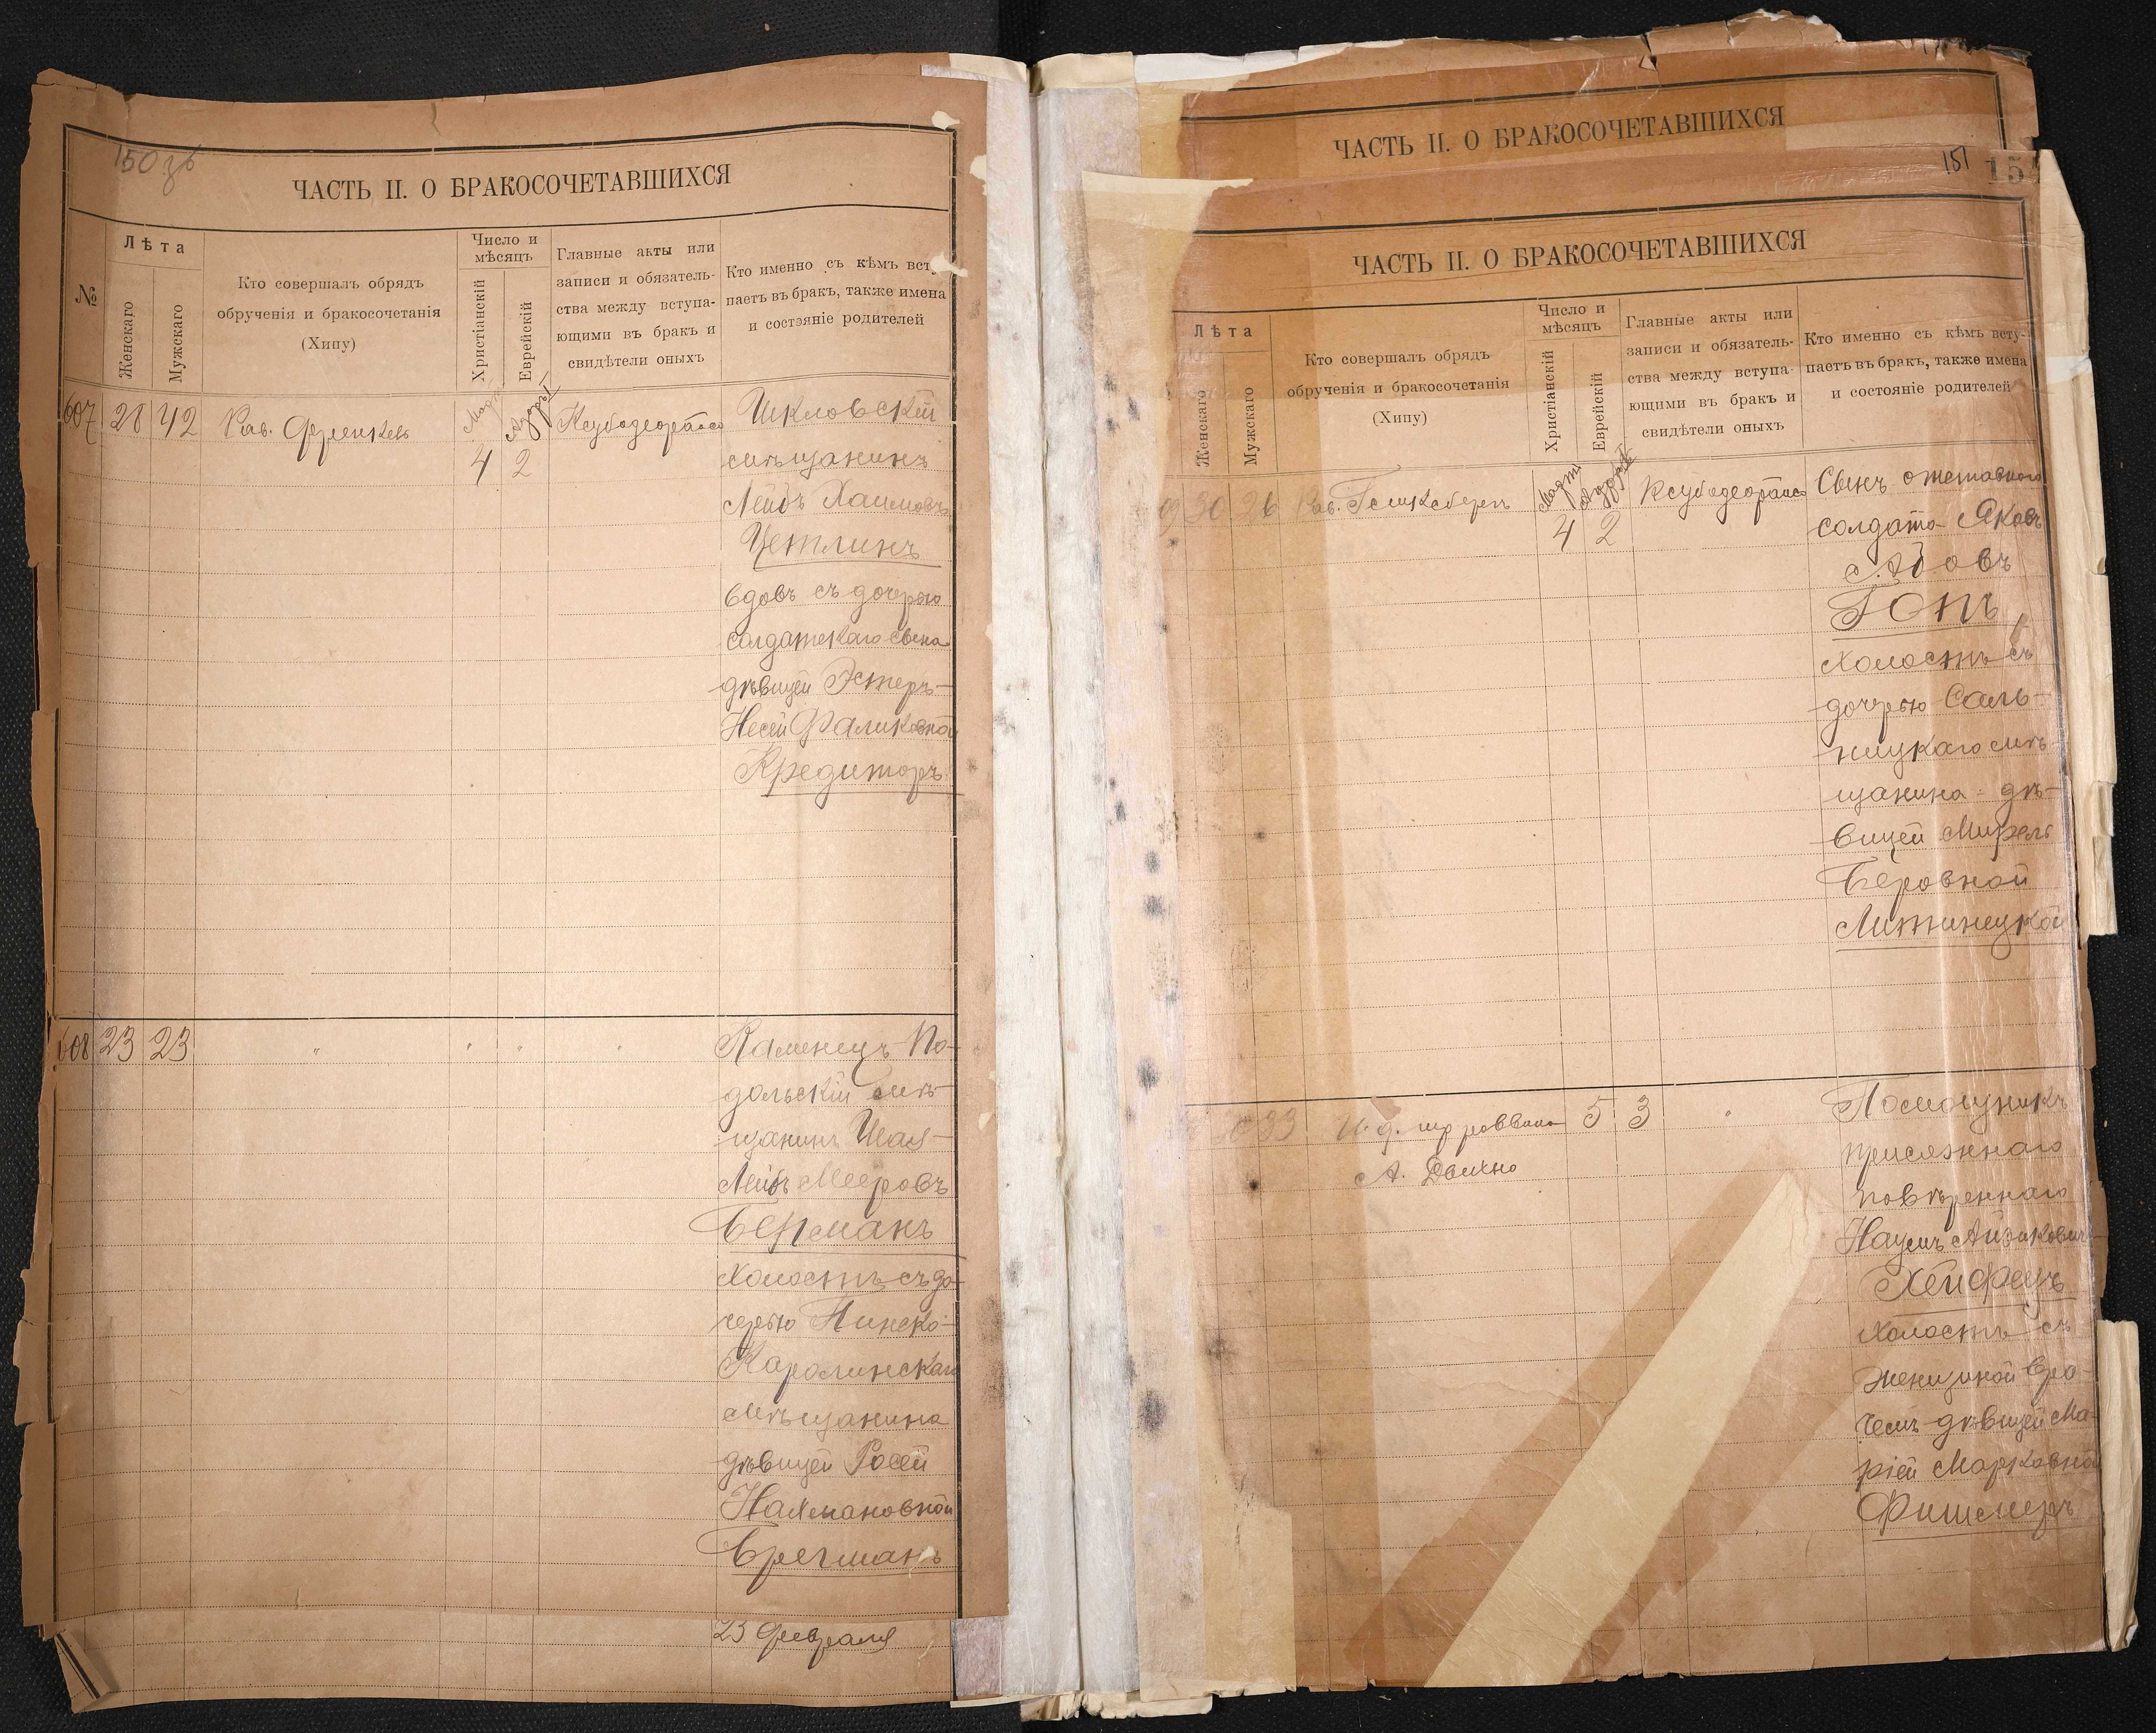 150 об
ЧАСТЬ II. О БРАКОСОЧЕТАВШИХСЯ
№
Лѣта
Женскаго
Мужскаго
Кто совершалъ обрядъ
обрученія и бракосочетанія
(Хипу)
Число и
мѣсяцъ
Христіанскій
Еврейскій
Главные акты или
записи и обязатель-
ства между вступа-
ющими въ бракъ и
свидѣтели оныхъ
Кто именно съ кѣмъ всту
паетъ въ бракъ, также имена
и состояніе родителей
607 28 42 Рав. Френкель
Март 4
2
Шкловскій
мѣщанинъ
Лейбъ Хаимовъ
Цетлинъ
вдовъ съ дочерью
солдатскаго сына
дѣвицей Эстеръ-
Несей Фаликовной
Кредиторъ
608 23 23 " " " "
Каменецъ-По-
дольскій мѣ-
щанинъ Шая-
Лейбъ Мееровъ
Берманъ
холостъ съ до-
черью Пинско-
Каролинскаго
мѣщанина
дѣвицей Росей
Нахмановной
Брегманъ
23 февраля
ЧАСТЬ II. О БРАКОСОЧЕТАВШИХСЯ
151
ЧАСТЬ II. О БРАКОСОЧЕТАВШИХСЯ
Лѣта
Женскаго
Мужскаго
Кто совершалъ обрядъ
обрученія и бракосочетанія
(Хипу)
Число и
мѣсяцъ
Христіанскій
Еврейскій
Главные акты или
записи и обязатель-
ства между вступа-
ющими въ бракъ и
свидѣтели оныхъ
Кто именно съ кѣмъ всту-
паетъ въ бракъ, также имена
и состояніе родителей
9 30 26 Рав.
Март 4
2
Сынъ отставного
солдата Яковъ
Абовъ
Гопъ
холостъ съ
дочерью Саль-
ницкаго мѣ-
щанина дѣ-
вицей Мирель
Беровной
Литинецкой
33
И. д. раввина
А.
5 3 "
Помощникъ
присяжнаго
повѣреннаго
Наумъ Айзиковичъ
Хейфецъ
холостъ съ
женщиной вра-
чемъ дѣвицей Ма-
ріей Марковной
Фишмеръ